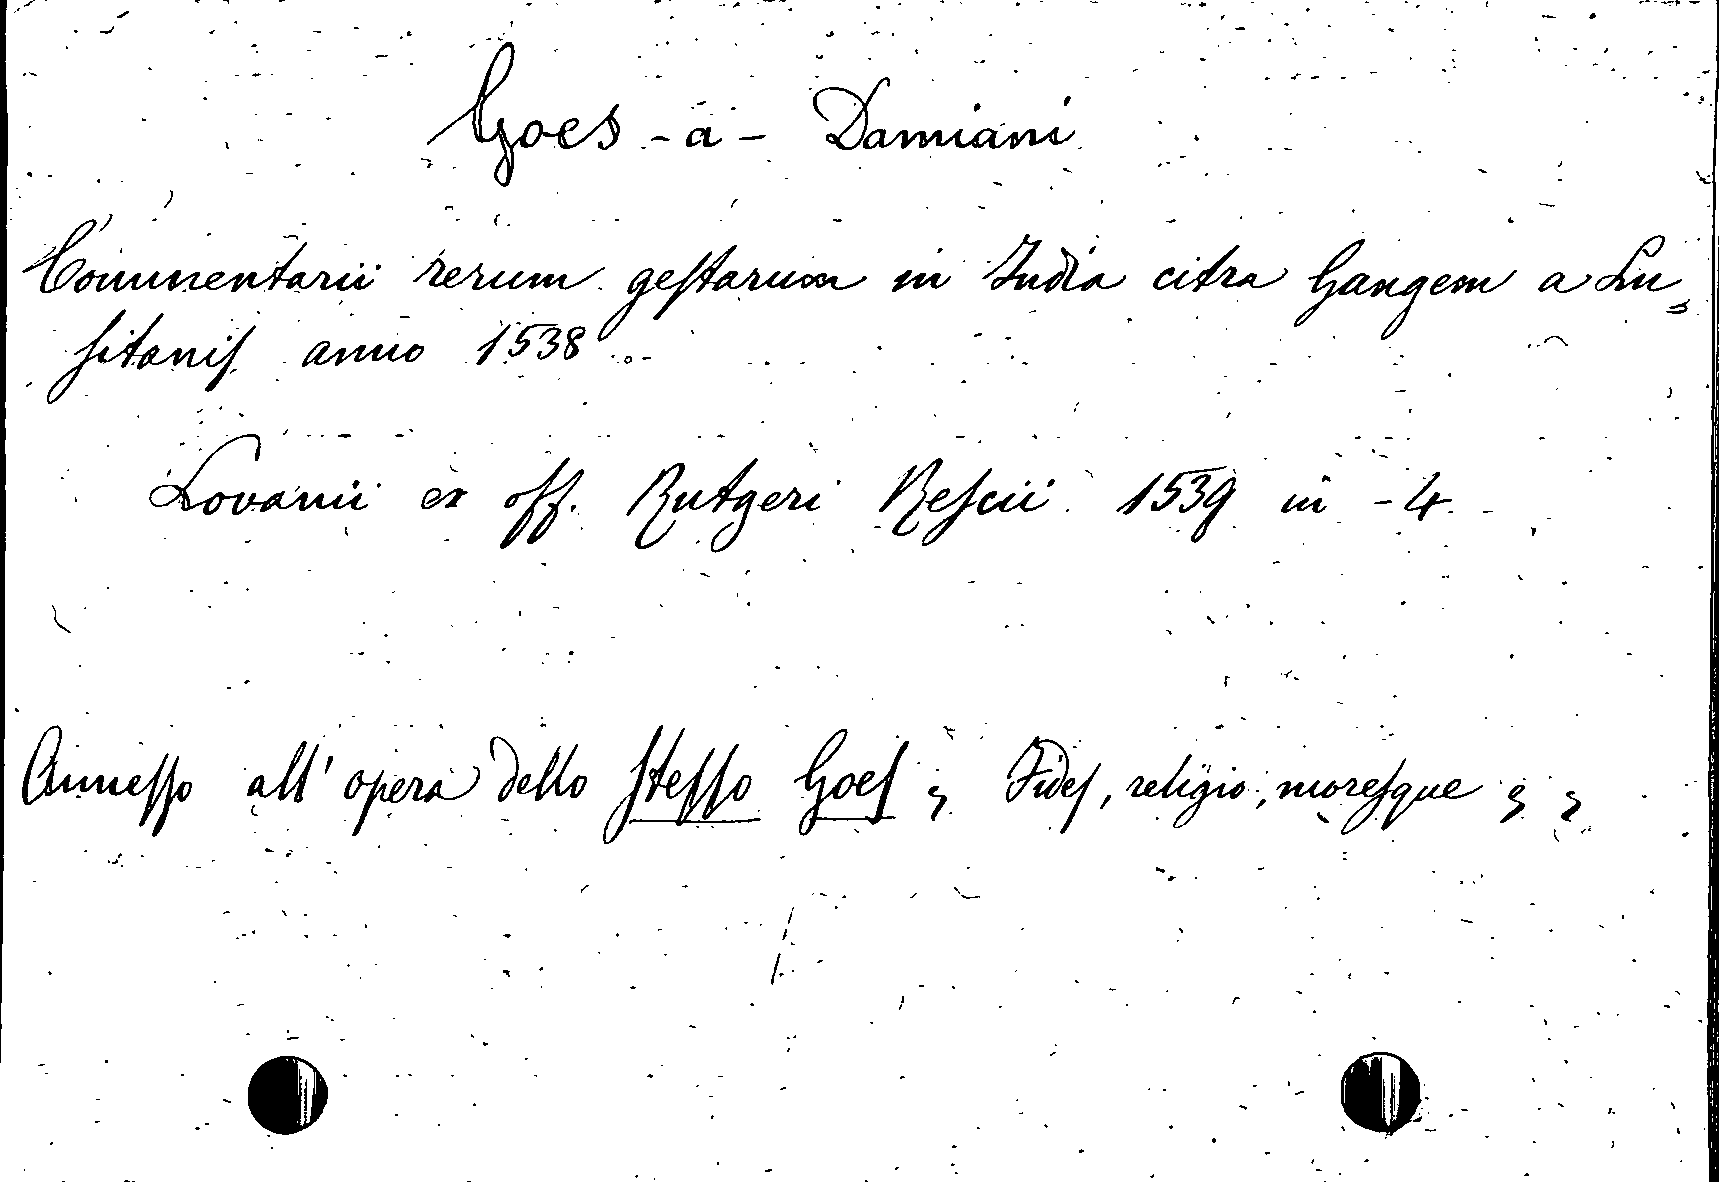 Goes - a - Damiani
Commentarii rerum gestarum in India citra Gangem a Lu=
sitanis anno 1538 ..
Lovanii ex off. Rutgeri Rescii 1539 in - 4
Annesso all' opera dello stesso Goes „ Fides, religio, moresque „ „